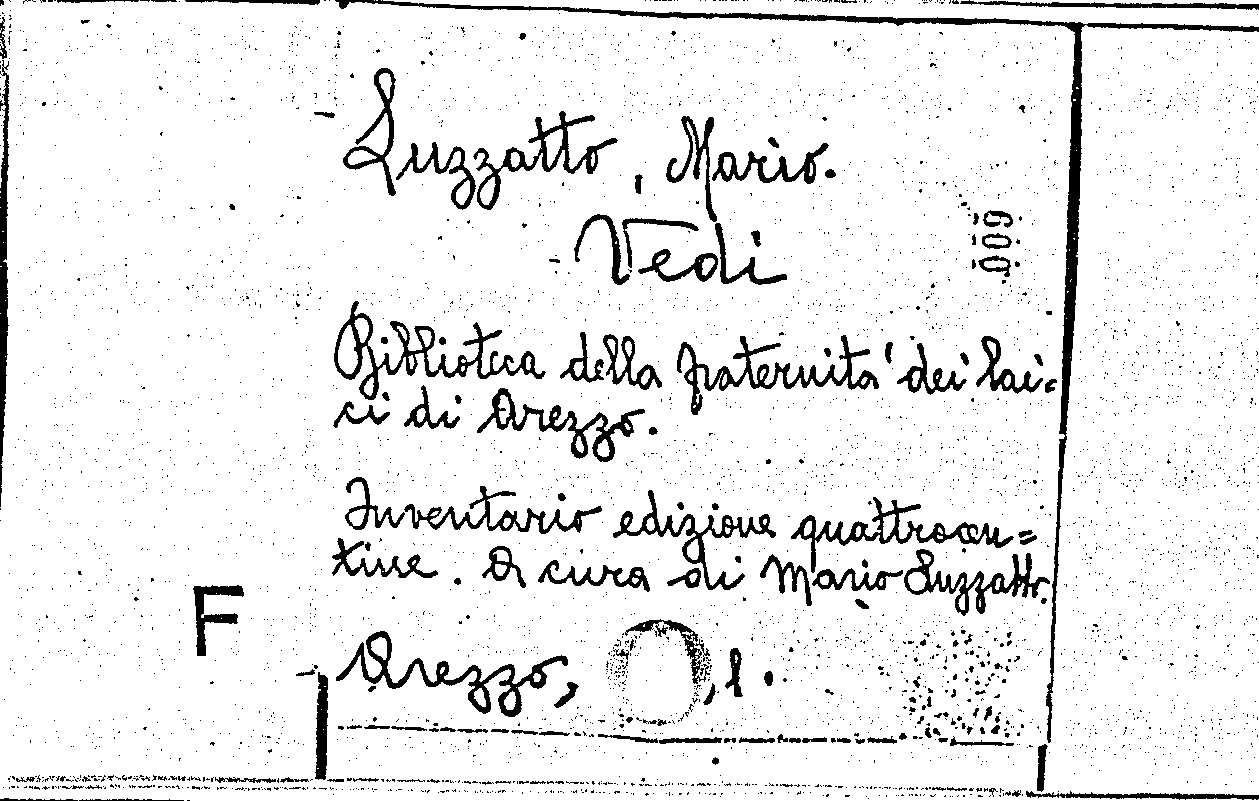 Luzzatto, Mario.
Vedi
Biblioteca della fraternità dei lai=
ci di Arezzo.
Inventario edizione quattrocen=
tine. A cura di Mario Luzzatto.
Arezzo, , s.
600
F